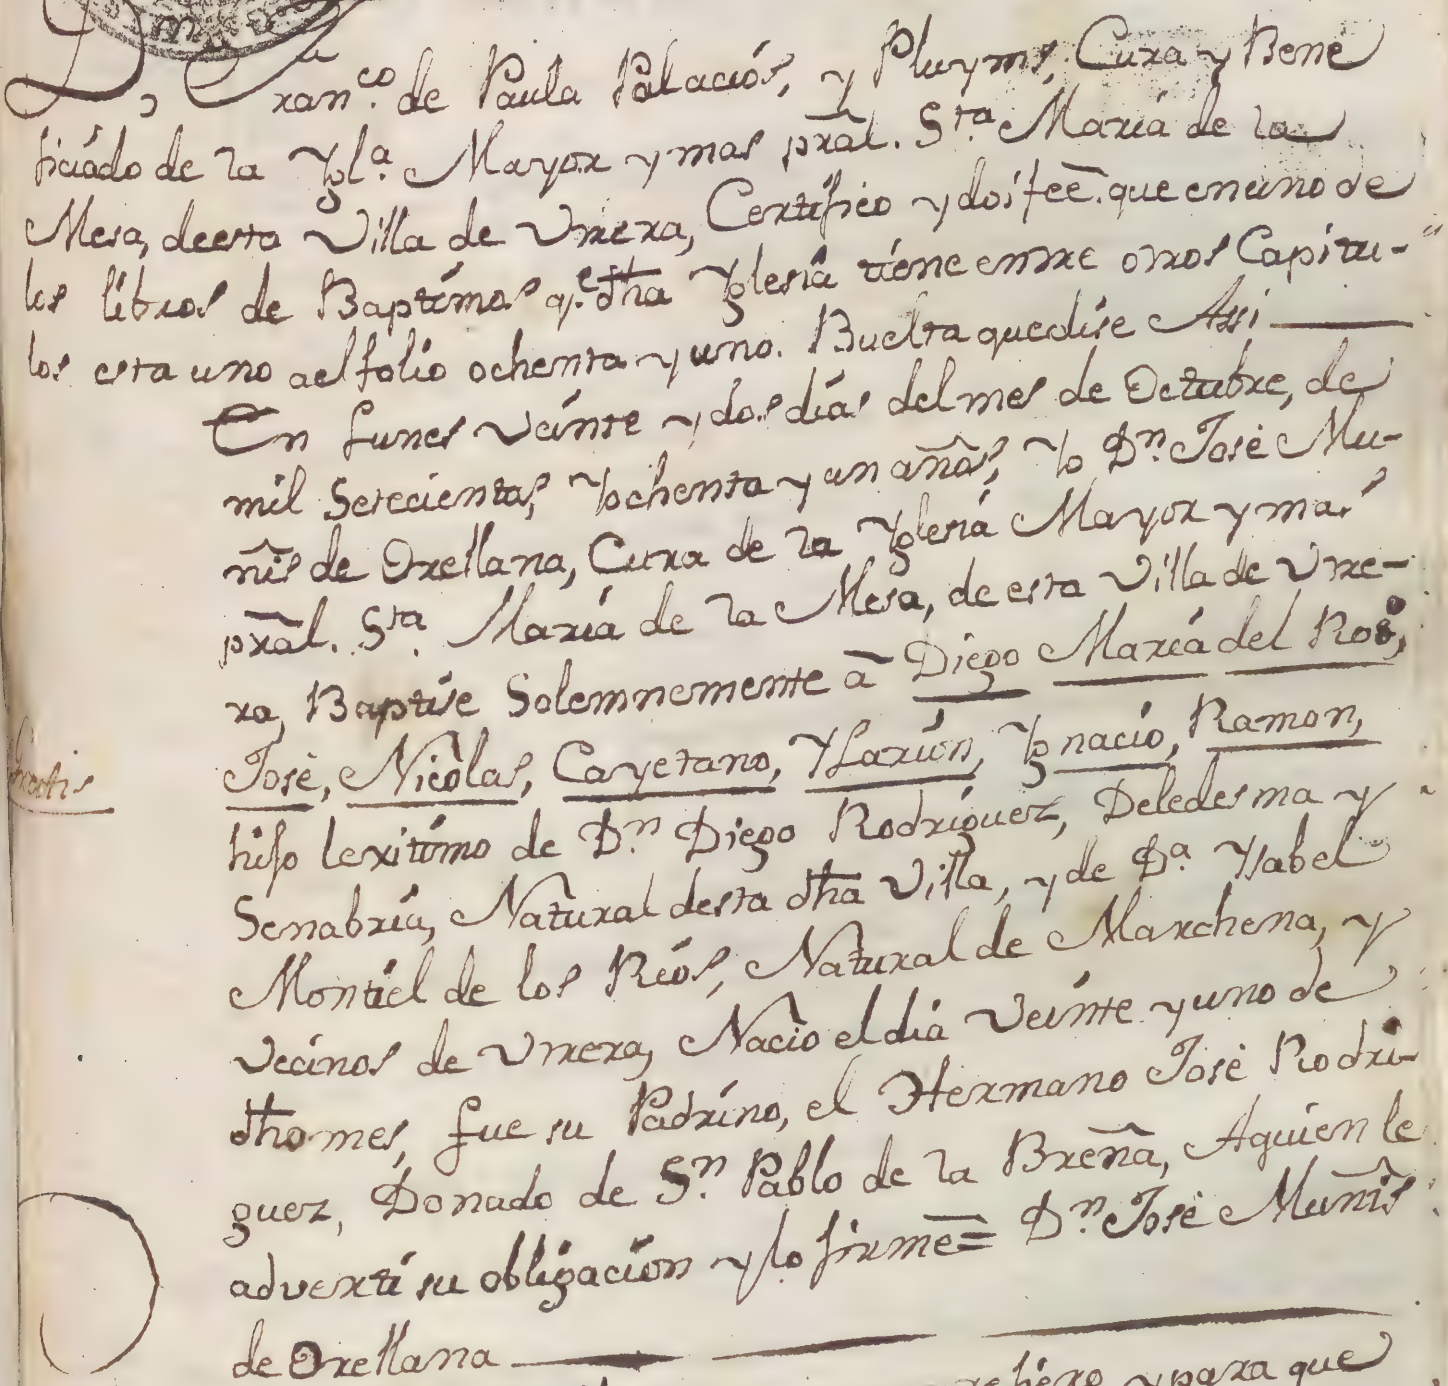 Dn. Franco. de Paula Palaciós, y Pluyms, Cura y Bene
ficiádo de la Ygla. Mayor y mas prãl. Sta. María de la
Mesa, deesta Villa de Utrera, Certífico y doi feé. que en uno de
los líbros de Baptísmos qe. dha Yglesia tíene entre otros Capitu-
los esta uno aelfolio ochenta y uno. Buelta quedise Assi
En Lunes veínte y dos días del mes de Octubre, de
mil Setecientas, Yochenta y un años, Yo Dn. José Mu-
ñis de Orellana, Cura de la Yglesia Mayor y mas
prãl. Sta. María de la Mesa, de esta Villa de Utre-
ra, Baptíse Solemnemente à Diego María del Roso,
José, Nicolas, Cayetano, YLarión, Ygnacío, Ramon,
hijo lexitímo de Dn. Diego Rodríguez, Deledesma y
Senabria, Natural desta dha Villa, y de Da. Ysabel
Montíel de los Ríos, Natural de Marchena, y
Vecínos de Utrera, Nacío el día Veínte y uno de
dho mes, fue su Padríno, el Hermano José Rodri-
guez, Donado de Sn. Pablo de la Breña, Aquien le
advertí su oblígacíon y lo firmé = Dn. José Muñís
de Orellana
y para que